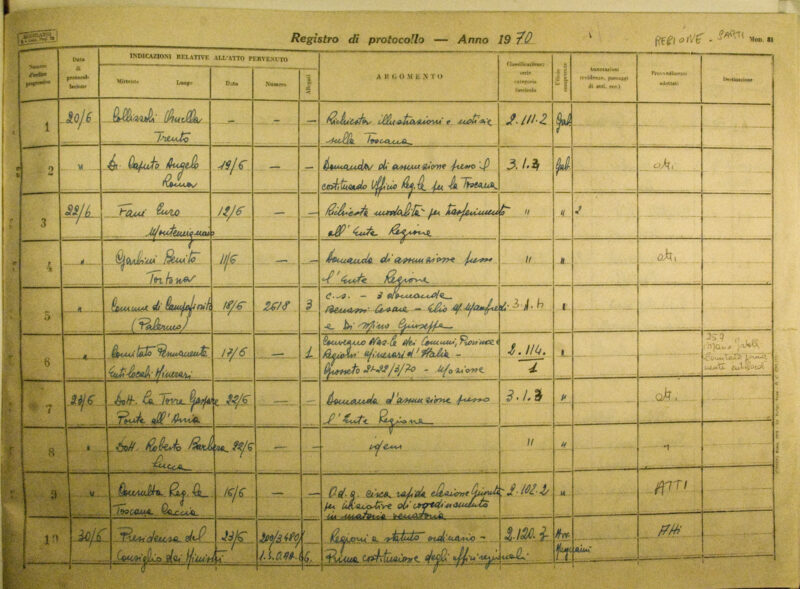 Registro di protocollo — Anno 1970
REGIONE - SARTI Mod. 81
Numero d'ordine progressivo
Data di protocollazione
INDICAZIONI RELATIVE ALL'ATTO PERVENUTO
Mittente Luogo Data Numero Allegati
ARGOMENTO
Classificazione: serie categoria fascicolo
Ufficio competente
Annotazioni (evidenze, passaggi di atti, ecc.)
Provvedimenti adottati
Destinazione
1 20/6 Ornella — — — Richiesta illustrazioni e notizie 2.111.2 Gab.
Trento sulla Toscana
2 " Dr. Caputo Angelo 19/6 — — Domanda di assunzione presso il 3.1.3 Gab. atti
Roma costituendo Ufficio Reg.le per la Toscana
3 22/6 Fani Enzo 12/6 — — Richiesta modalità per trasferimento " " 2
all'Ente Regione
4 " Garbini Benito 11/6 — — Domanda di assunzione presso " " atti
Tortona l'Ente Regione
5 " Comune di Campofiorito 18/6 2618 3 c.s. - 3 domanda "
(Palermo) Benassi Cesare - Elio M. Manfredi
e Di Mino Giuseppe
6 " Comitato Permanente 17/6 — 1 Convegno Naz.le dei Comuni, Province e 2.114. "
Enti locali Minerari Regioni Minerari d'Italia - 1
Grosseto 21-22/3/70 - Mozione
7 23/6 Dott. La Torre Gaspare 22/6 — — Domanda d'assunzione presso 3.1.3 " atti
Ponte all'Ania l'Ente Regione
8 " Dott. Roberto Barbera 22/6 — — idem " " "
Lucca
9 " Consulta Reg.le 16/6 — — O.d.g. circa rapida elezione Giunta 2.102.2 " ATTI
Toscana Caccia per iniziative di coordinamento
in materia venatoria
10 30/6 Presidenza del 23/6 Regioni a statuto ordinario - 2.120.3 Atti
Consiglio dei Ministri Prima costituzione degli uffici regionali